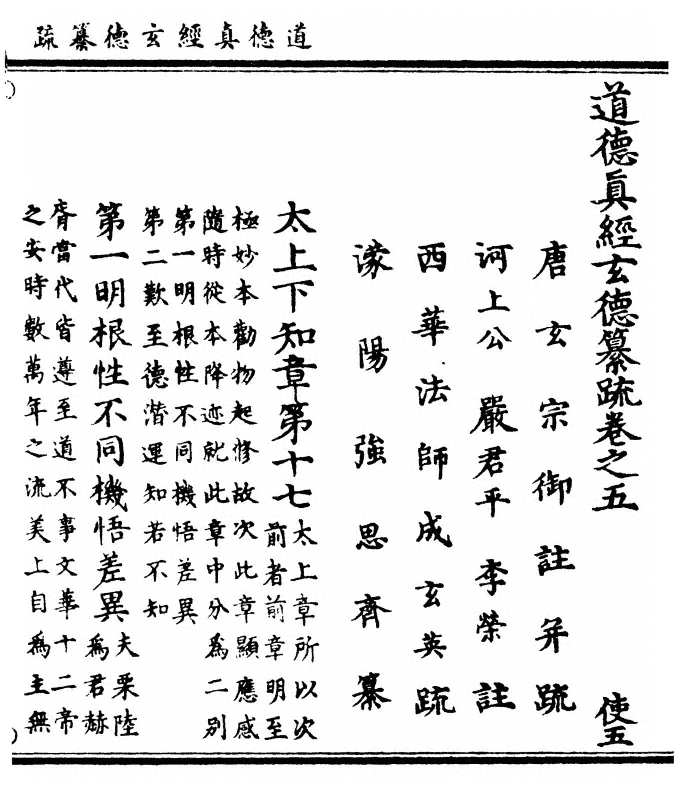 道德真經玄德纂疏
道德真經玄德纂疏卷之五 使五
唐玄宗御註并疏
河上公 嚴君平 李榮 註
西華法師成玄英疏
濛陽強思齊纂
太上下知章第十七
太上章所以次
前者前章明至
極妙本勸物起修故次此章顯應感
隨時從本降迹就此章中分為二別
第一明根性不同機悟差異
第二歎至德潛運知若不知
第一明根性不同機悟差異
夫栗陸
為君赫
胥當代皆遵至道不事文華十二帝
之安時數萬年之流美上自為主無